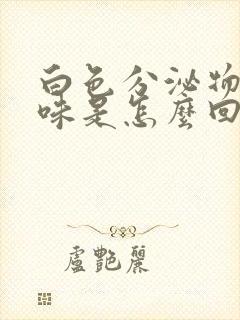 白色分泌物
味是怎麼回
盧艷麗